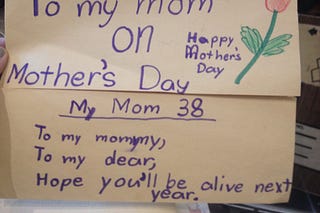 To my mom
on
Happy
Mother's
Day
Mother's Day
My Mom 38
To my mommy,
To my dear,
Hope you'll be alive next
year.